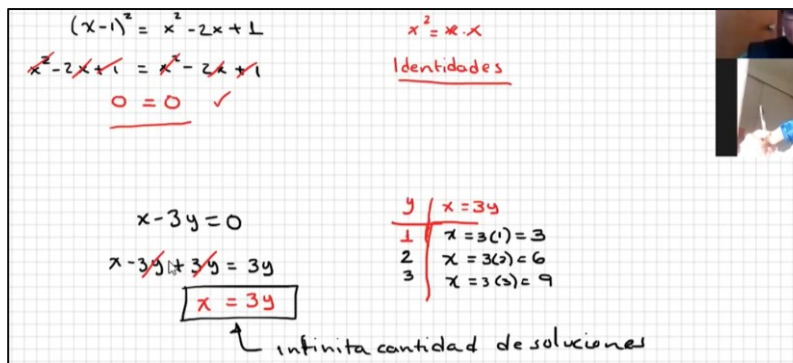 (x-1)² = x² - 2x + 1
x² - 2x + 1 = x² - 2x + 1
0 = 0 ✓
x² = x · x
Identidades
x - 3y = 0
x - 3y + 3y = 3y
x = 3y
infinita cantidad de soluciones
y | x = 3y
1 | x = 3(1) = 3
2 | x = 3(2) = 6
3 | x = 3(3) = 9